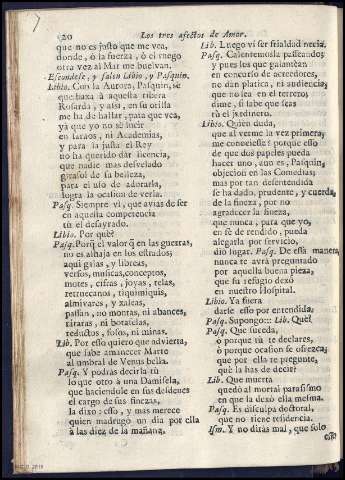 20 Los tres afectos de Amor.
que no es justo que me vea,
donde, ò la fuerza, ò el ruego
otra vez al Mar me buelvan.
Escondese, y salen Libio, y Pasquin.
Libio. Con la Aurora, Pasquin, sè
que baxa à aquesta ribera
Rosarda, y assi, en su orilla
me ha de hallar, para que vea,
yà que yo no sè lucir
en saraos, ni Academias,
y para la justa el Rey
no ha querido dár licencia,
que nadie mas desvelado
girasol de su belleza,
para el uso de adorarla,
logra la ocasion de verla.
Pasq. Siempre vi, que avias de ser
en aquesta competencia
tù el desayrado.
Libio. Por què?
Pasq. Porq̃ el valor q̃ en las guerras,
no es alhaja en los estrados;
aqui galas, y libreas,
versos, musicas, conceptos,
motes, cifras, joyas, telas,
retruecanos, tiquimiquis,
almivares, y xaleas,
passan, no montas, ni abances,
ataràs, ni botaselas,
reductos, fosos, ni minas.
Lib. Por esso quiero que advierta,
que sabe amanecer Marte
al umbral de Venus bella.
Pasq. Y podràs decirla tù
lo que otro à una Damisela,
que haciendole en sus desdenes
el cargo de sus finezas,
la dixo: esso, y mas merece
quien madrugò un dia por ella
à las diez de la mañana.
Lib. Luego vi ser frialdad necia.
Pasq. Calentemosla passeando;
y pues los que galantèan
en concurso de acreedores,
no dan platica, ni audiencia,
que no sea en el terrero;
dime, si sabe que seas
tù el jardinero.
Libio. Quien duda,
que al verme la vez primera,
me conociesse? porque esso
de que dos papeles pueda
hacer uno, aun es, Pasquin,
objecion en las Comedias;
mas por tan desentendida
se ha dado, prudente, y cuerda,
de la fineza, por no
agradecer la fineza,
que nunca, para que yo,
en fè de rendido, pueda
alegarla por servicio,
diò lugar. Pasq. De essa manera
nunca te avrà preguntado
por aquella buena pieza,
que su refugio dexò
en nuestro Hospital.
Libio. Ya fuera
darse esso por entendida.
Pasq. Supongo::: Lib. Què?
Pasq. Que suceda,
ò porque tù te declares,
ò porque ocasion se ofrezca;
que por ella te pregunte,
què la has de decir?
Lib. Que muerta
quedò al mortal parasismo
en que la dexò ella mesma.
Pasq. Es disculpa doctoral,
que no tiene residencia.
Ism. Y no diràs mal, que solo